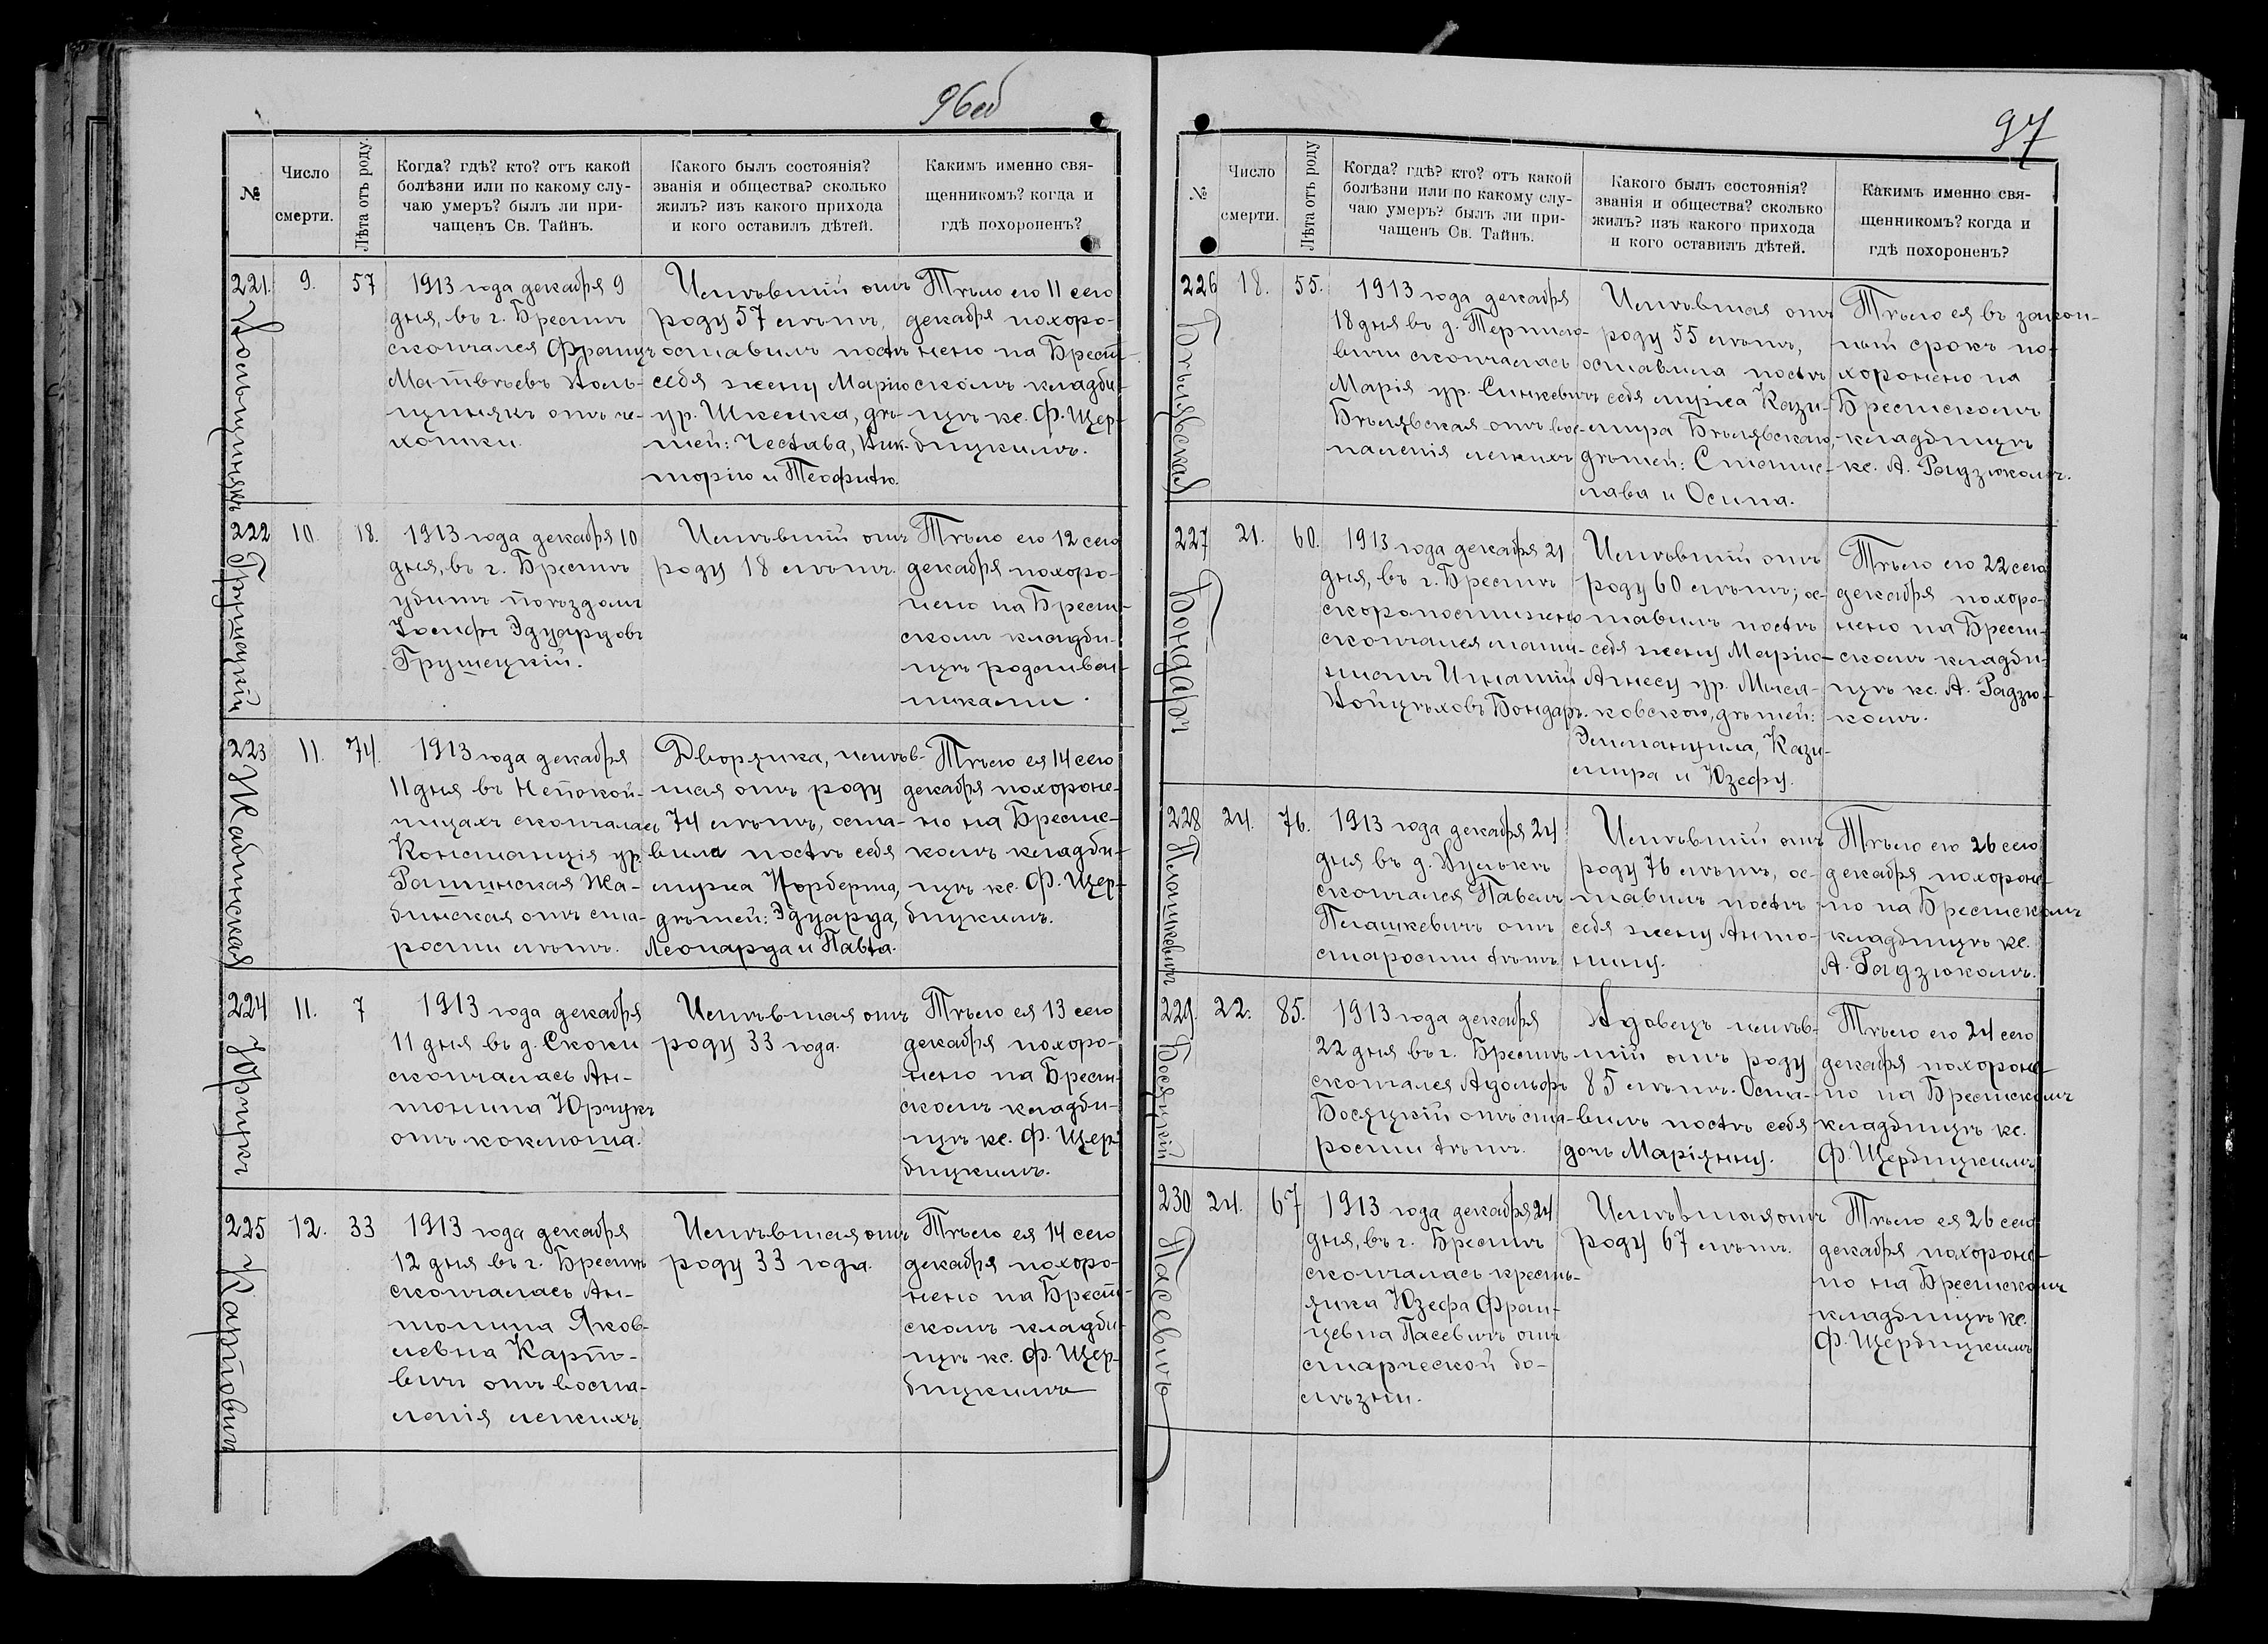 96об
№
Число
смерти.
Лѣта отъ роду.
Когда? гдѣ? кто? отъ какой
болѣзни или по какому слу-
чаю умеръ? былъ ли при-
чащенъ Св. Тайнъ.
Какого былъ состоянія?
званія и общества? сколько
жилъ? изъ какого прихода
и кого оставилъ дѣтей.
Какимъ именно свя-
щенникомъ? когда и
гдѣ похороненъ?
221.
Вольициякъ
9.
57
1913 года декабря 9
дня, въ г. Брестѣ
скончался Францъ
Матвѣевъ Воль-
от че-
хотки.
Имѣвшій отъ
роду 57 лѣтъ,
оставилъ послѣ
себя жену Марію
ур. Шкелка, дѣ-
тей: Чеслава, Вик-
торію и Теофилю.
Тѣло его 11 сего
декабря похоро-
нено на Брест-
скомъ кладби-
щѣ кс. Ф. Щер-
бицкимъ.
222
Грушецкій
10.
18.
1913 года декабря 10
дня, въ г. Брестѣ
убитъ поѣздомъ
Іосифъ Эдуардовъ
Грушецкій.
Имѣвшій отъ
роду 18 лѣтъ.
Тѣло его 12 сего
декабря похоро-
нено на Брест-
скомъ кладби-
щѣ родствен-
никами.
223
Жабинская
11.
74.
1913 года декабря
11 дня въ Непокой-
чицахъ скончалась
Констанція ур.
Рашинская Жа-
бинская отъ ста-
рости лѣтъ.
Дворянка, имѣв-
шая отъ роду
74 лѣтъ, оста-
вила послѣ себя
мужа Норберта,
дѣтей: Эдуарда,
Леонарда и Павла.
Тѣло ея 14 сего
декабря похороне-
но на Брестс-
комъ кладби-
щѣ кс. Ф. Щер-
бицкимъ.
224
Юрчукъ
11.
7
1913 года декабря
11 дня въ д. Скоки
скончалась Ан-
тонина Юрчукъ
отъ коклюша.
Имѣвшая отъ
роду 33 года.
Тѣло ея 13 сего
декабря похоро-
нено на Брест-
скомъ кладби-
щѣ кс. Ф. Щер-
бицкимъ.
225
Карповичъ
12.
33
1913 года декабря
12 дня въ г. Брестѣ
скончалась Ан-
тонина Яков-
левна Карпо-
вичъ отъ воспа-
ленія легкихъ.
Имѣвшая отъ
роду 33 года.
Тѣло ея 14 сего
декабря похоро-
нено на Брест-
скомъ кладби-
щѣ кс. Ф. Щер-
бицкимъ
97
№
Число
смерти.
Лѣта отъ роду
Когда? гдѣ? кто? отъ какой
болѣзни или по какому слу-
чаю умеръ? былъ ли при-
чащенъ Св. Тайнъ.
Какого былъ состоянія?
званія и общества? сколько
жилъ? изъ какого прихода
и кого оставилъ дѣтей.
Какимъ именно свя-
щенникомъ? когда и
гдѣ похороненъ?
226
Бѣлявская
18.
55.
1913 года декабря
18 дня въ д. Терпило-
вичи скончалась
Марія ур. Синкевичъ
Бѣлявская отъ вос-
паленія легкихъ
Имѣвшая отъ
роду 55 лѣтъ,
оставила послѣ
себя мужа Кази-
мира Бѣлявскаго,
дѣтей: Станис-
лава и Осипа.
Тѣло ея въ закон-
ный срокъ по-
хоронено на
Брестскомъ
кладбищѣ
кс. А. Радзюкомъ.
227
Бондаръ
21.
60.
1913 года декабря 21
дня, въ г. Брестѣ
скоропостижно
скончался
Игнатій
Войцѣховъ Бондаръ.
Имѣвшій отъ
роду 60 лѣтъ; ос-
тавилъ послѣ
себя жену Марію-
Агнесу ур. Мыса-
ковскою, дѣтей:
Эммануила, Кази-
мира и Юзефу.
Тѣло его 22 сего
декабря похоро-
нено на Брест-
скомъ кладби-
щѣ кс. А. Радзю-
комъ.
228
Пелашкевичъ
24.
76.
1913 года декабря 24
дня въ д. Вулькѣ
скончался Павелъ
Пелашкевичъ отъ
старости лѣтъ
Имѣвшій отъ
роду 76 лѣтъ, ос-
тавилъ послѣ
себя жену Анто-
нину.
Тѣло его 26 сего
декабря похороне-
но на Брестскомъ
кладбищѣ кс.
А. Радзюкомъ.
229.
Босяцкій
22.
85.
1913 года декабря
22 дня въ г. Брестѣ
скончался Адольфъ
Босяцкій отъ ста-
рости лѣтъ.
Вдовецъ имѣв-
шій отъ роду
85 лѣтъ. Оста-
вилъ послѣ себя
дочь Маріянну.
Тѣло его 24 сего
декабря похороне-
но на Брестскомъ
кладбищѣ кс.
Ф. Щербицкимъ
230
Пасевичъ
24.
67
1913 года декабря 24
дня, въ г. Брестѣ
скончалась кресть-
янка Юзефа Фран-
цевна Пасевичъ отъ
старческой бо-
лѣзни.
Имѣвшая отъ
роду 67 лѣтъ.
Тѣло ея 26 сего
декабря похороне-
но на Брестскомъ
кладбищѣ кс.
Ф. Щербицкимъ